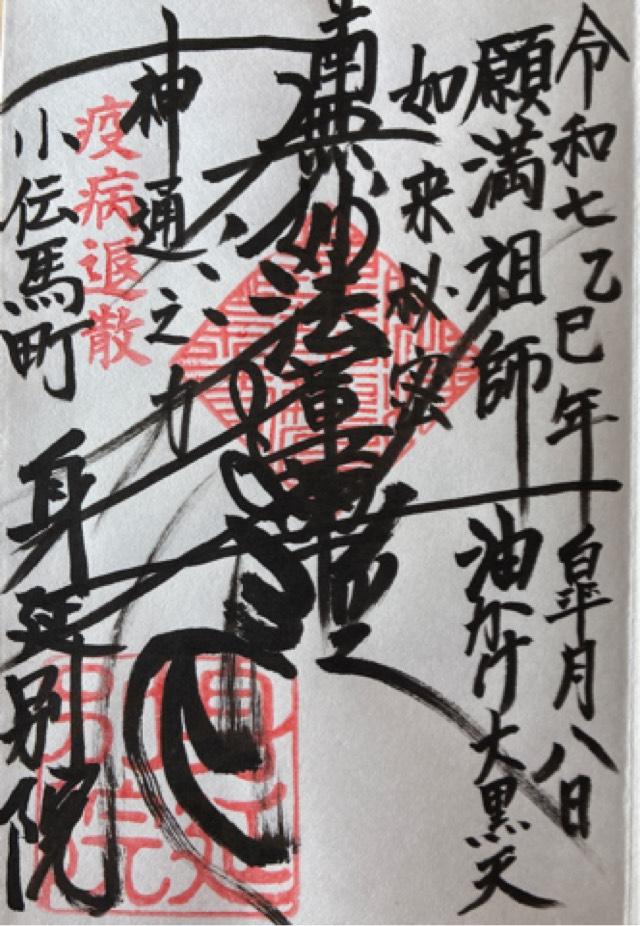 令和七乙巳年 皐月八日
願満祖師 油かけ大黒天
如来秘密
南無妙法蓮華経
神通之力
疫病退散
小伝馬町 身延別院
身延
別院